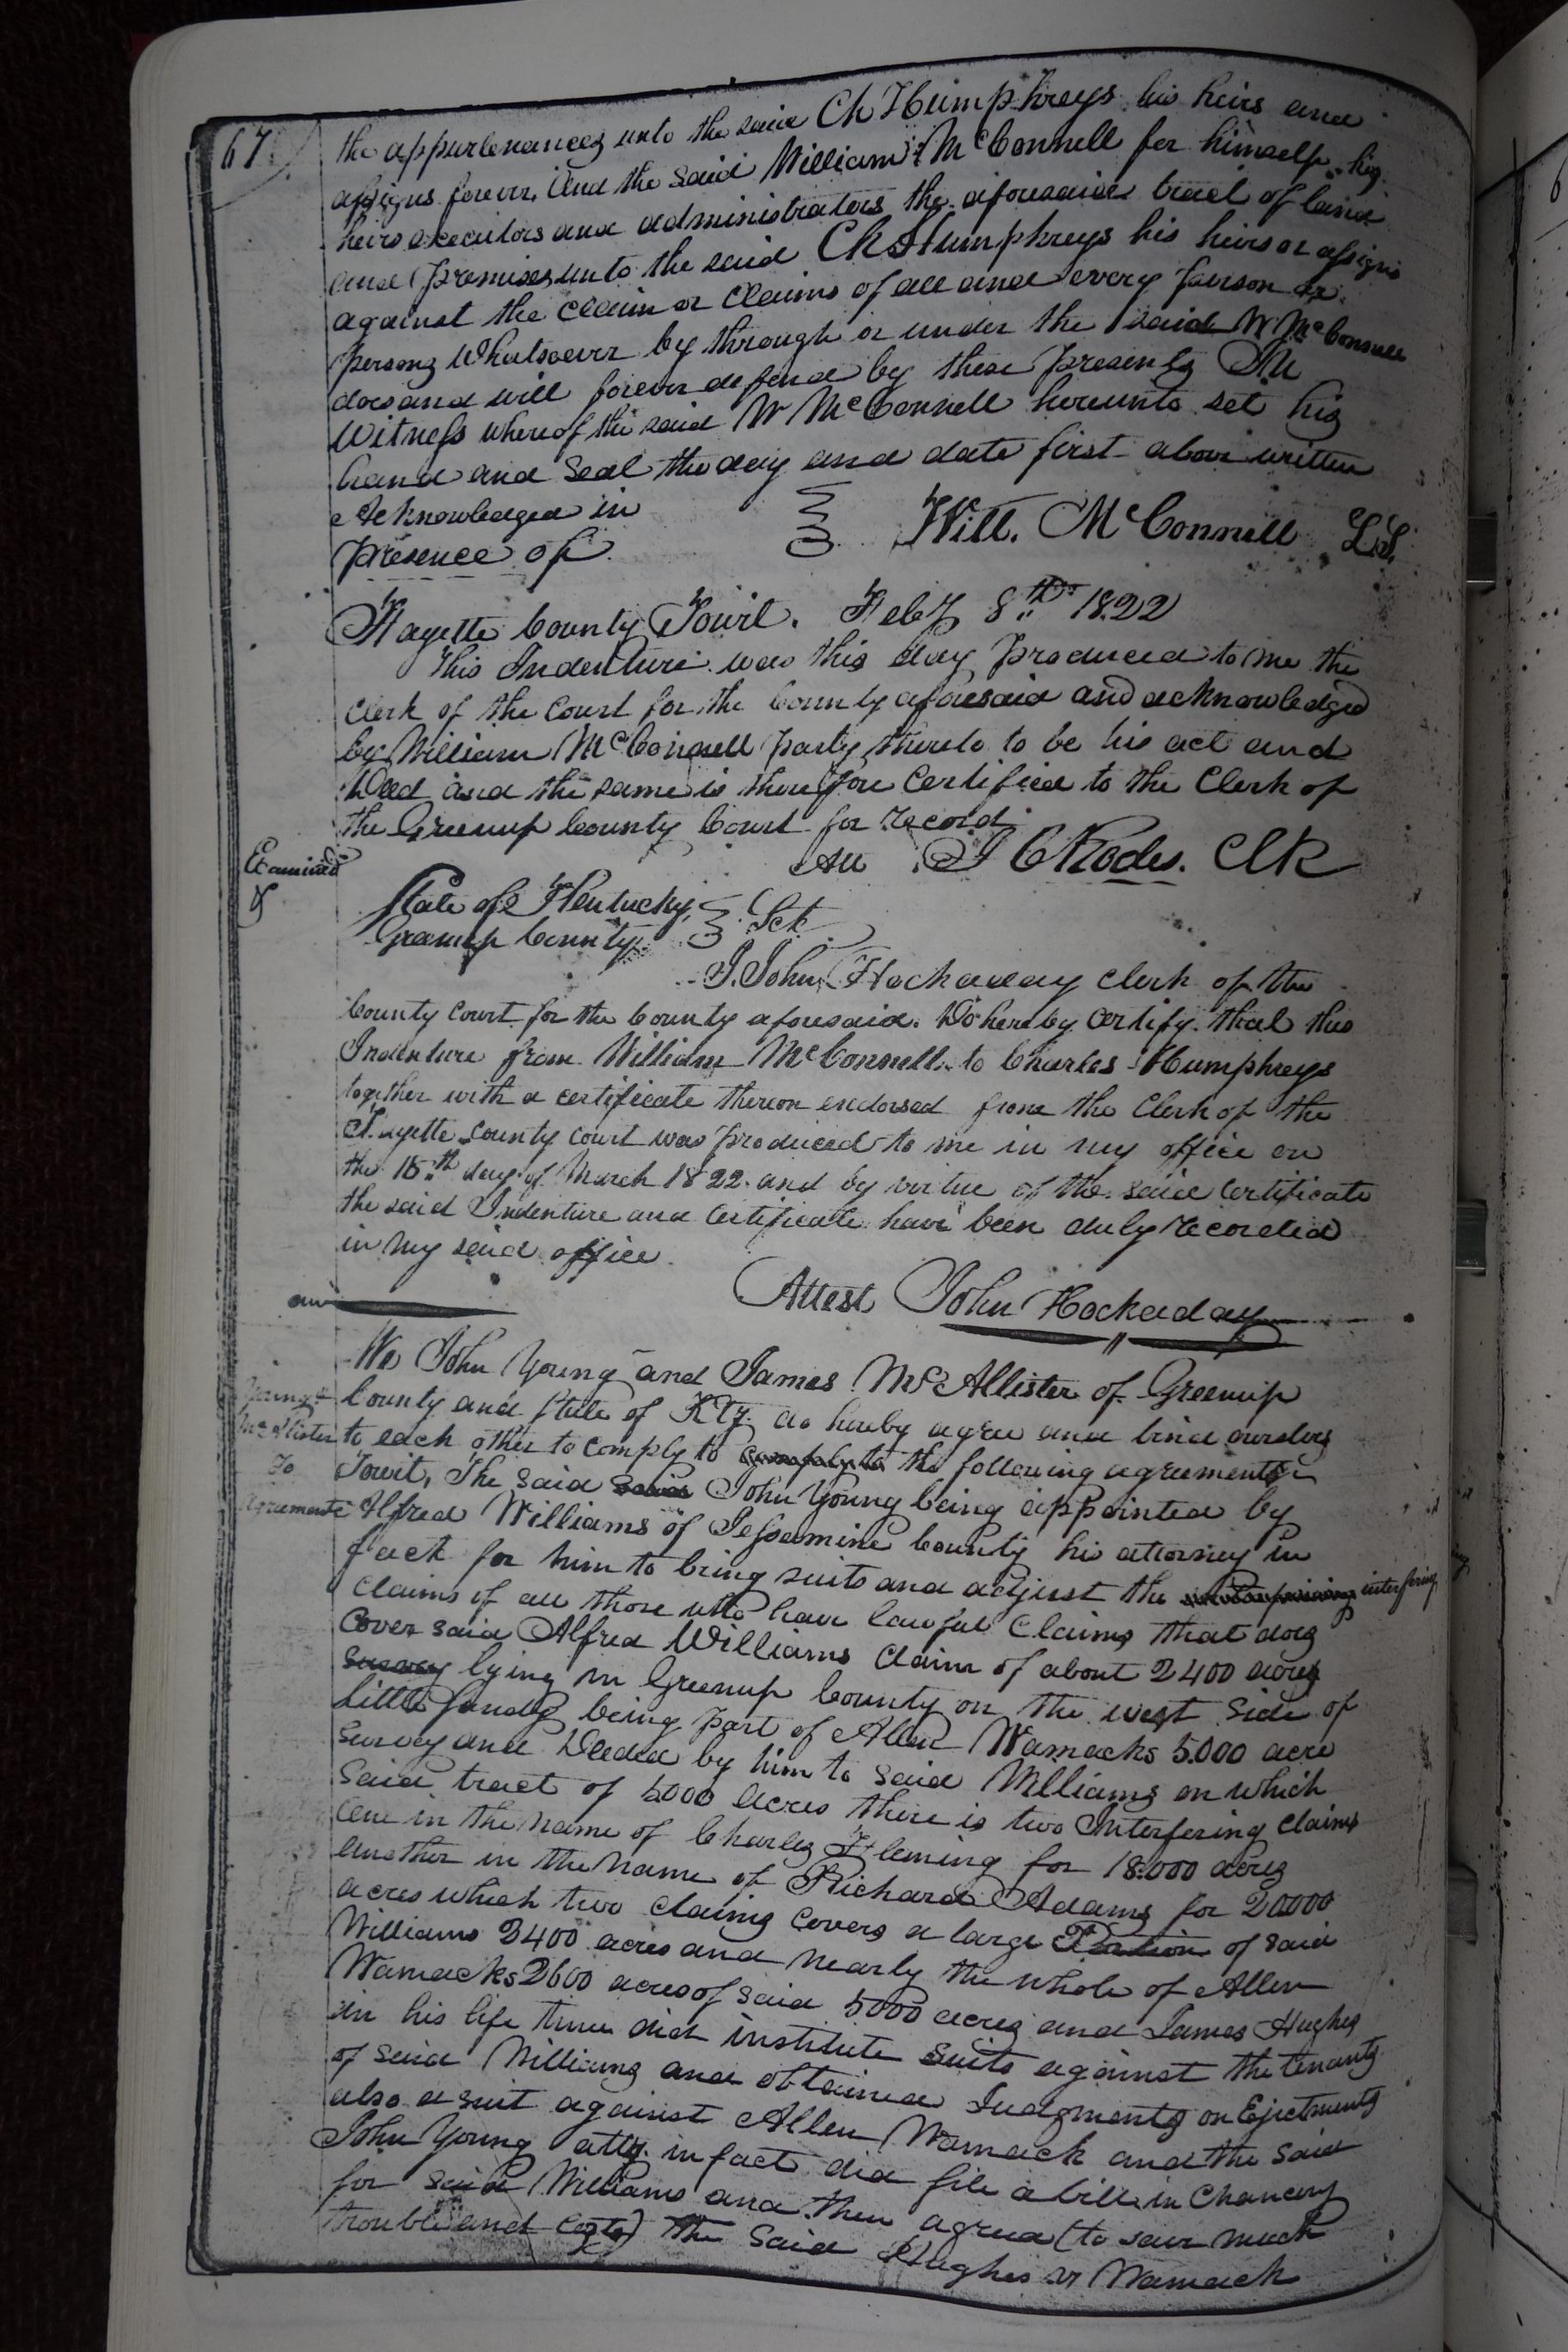 67
the appurtenances unto the said Ch Humphreys his heirs and
assigns forever. And the said William McConnell for himself his
heirs executors and administrators the aforesaid tract of land
and premises unto the said Ch Humphreys his heirs or assigns
against the claim or claims of all and every person or
persons Whatsoever by through or under the said W McConnell
does and will forever defend by these presents In
Witness whereof the said W McConnell hereunto set his
hand and Seal the day and date first above written
Acknowledged in
presence of
Will. McConnell L.S.
Fayette County Towit. Feby 8th 1822
This Indenture was this day produced to me the
Clerk of the Court for the County aforesaid and acknowledged
by William McConnell party thereto to be his act and
Deed and the same is therefore Certified to the Clerk of
the Greenup County Court for record
Att J C Rodes. Clk
Examined
State of Kentucky
Greenup County
Sct
I. John Hockaday Clerk of the
County Court for the County aforesaid. Do hereby Certify that this
Indenture from William McConnell to Charles Humphreys
together with a certificate thereon endorsed from the Clerk of the
Fayette County Court was produced to me in my office on
the 15th day of March 1822. and by virtue of the said Certificate
the said Indenture and Certificate have been duly recorded
in my said office
Attest John Hockaday
Young &
McAllister
To
Agreement
We John Young and James McAllister of Greenup
County and State of Kty. do hereby agree and bind ourselves
to each other to comply to comply to the following agreements
Towit, The said said John Young being appointed by
Alfred Williams of Jessamine County his attorney in
fact for him to bring suits and adjust the interfering
claims of all those who have lawful Claims that does
Cover said Alfred Williams Claim of about 2400 acres
survey lying in Greenup County on the west side of
Little Sandy being part of Allen Wamacks 5.000 acre
survey and Deeded by him to said Williams on which
said tract of 5000 acres there is two Interfering claims
One in the name of Charles Fleming for 18.000 acres
Another in the name of Richard Adams for 20000
acres which two claims covers a large Portion of said
Williams 2400 acres and nearly the whole of Allen
Wamacks 2600 acres of said 5000 acres and James Hughes
in his life time did institute suits against the tenants
of said Williams and obtained Judgments on Ejectments
also a suit against Allen Wamack and the said
John Young atty. in fact did file a bill in Chancery
for said Williams and then agreed (to save much
trouble and costs) the said Hughes vs Wamack